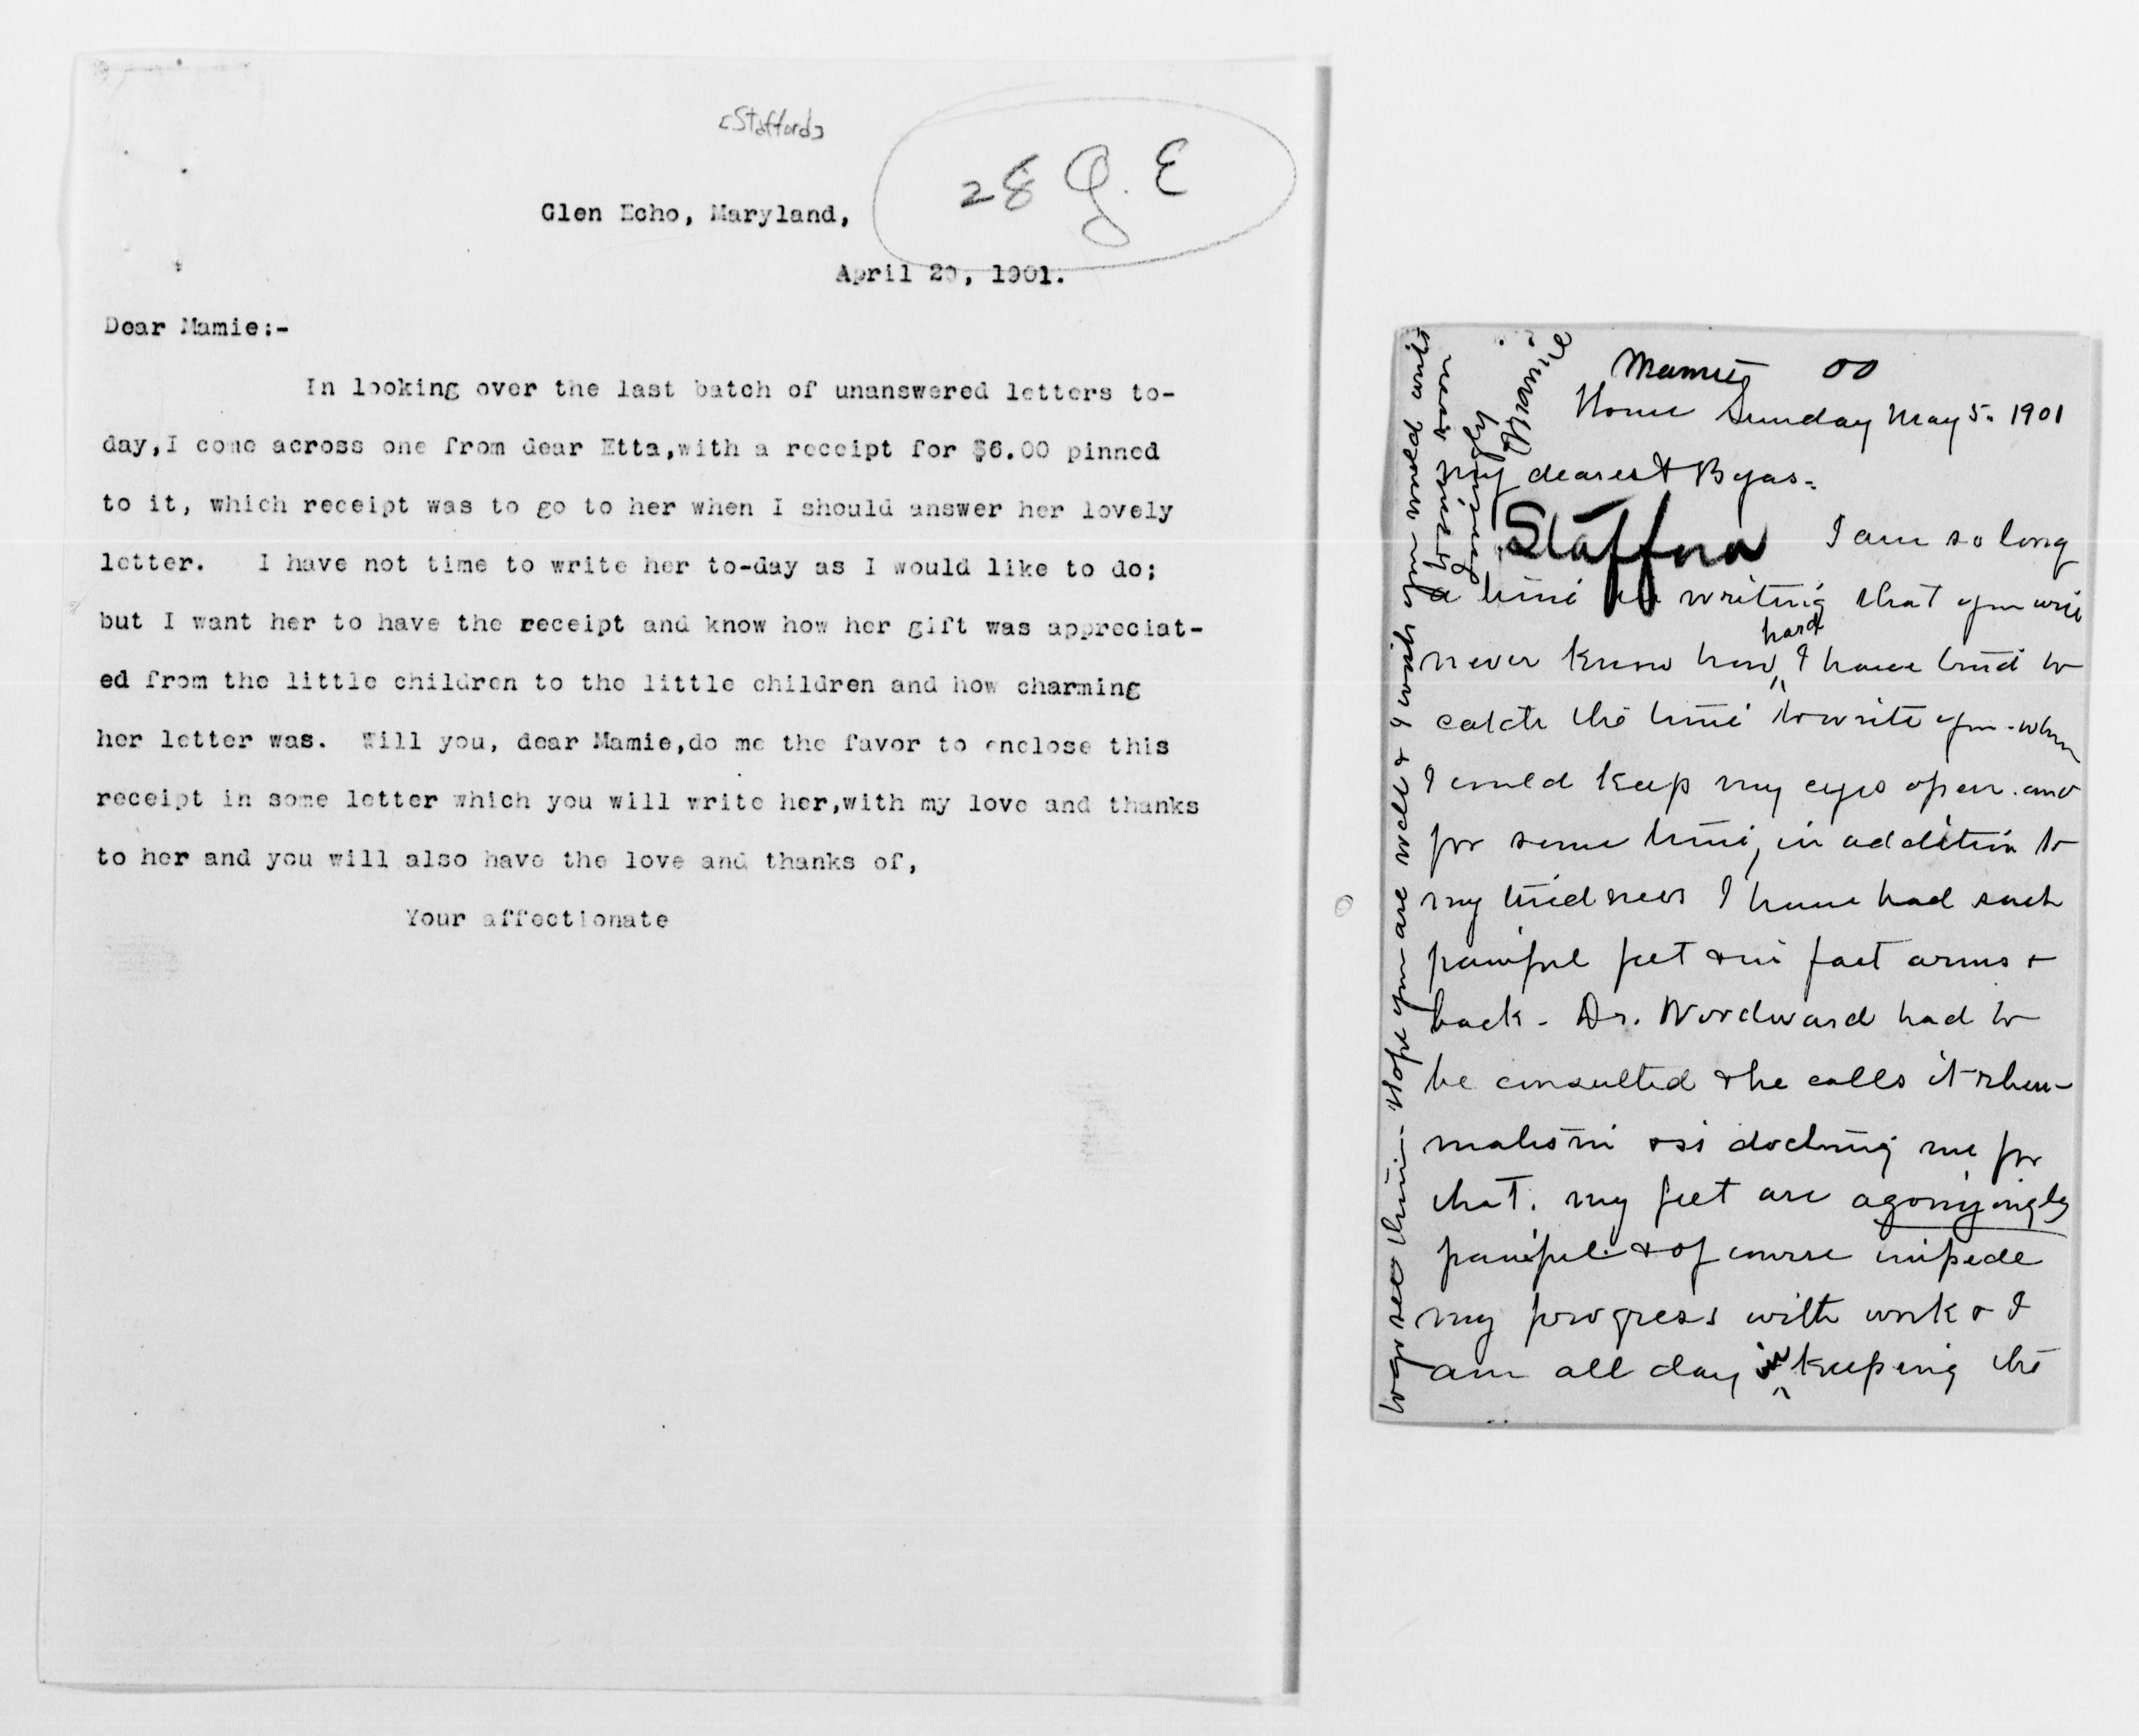 [Stafford]
28 G. E
Glen Echo, Maryland,
April 20, 1901.
Dear Mamie:-
In looking over the last batch of unanswered letters to-
day,I come across one from dear Etta,with a receipt for $6.00 pinned
to it, which receipt was to go to her when I should answer her lovely
letter. I have not time to write her to-day as I would like to do;
but I want her to have the receipt and know how her gift was appreciat-
ed from the little children to the little children and how charming
her letter was. Will you, dear Mamie,do me the favor to enclose this
receipt in some letter which you will write her,with my love and thanks
to her and you will also have the love and thanks of,
Your affectionate
Mamie 00
Home Sunday May 5. 1901
My dearest Byas-
Stafford
I am so long
a time in writing that you will
never know how hard I have tried to
catch the time to write you - when
I could keep my eyes open. and
for some time, in addition to
my tiredness I have had such
painful feet & in fact arms &
back - Dr. Woodward had to
be consulted & he calls it rheu-
matism & is doctoring me for
that. My feet are agonizingly
painful & of course impede
my progress with work & I
am all day in keeping the
to go see him - Hope you are well & I wish you would write
Mamie